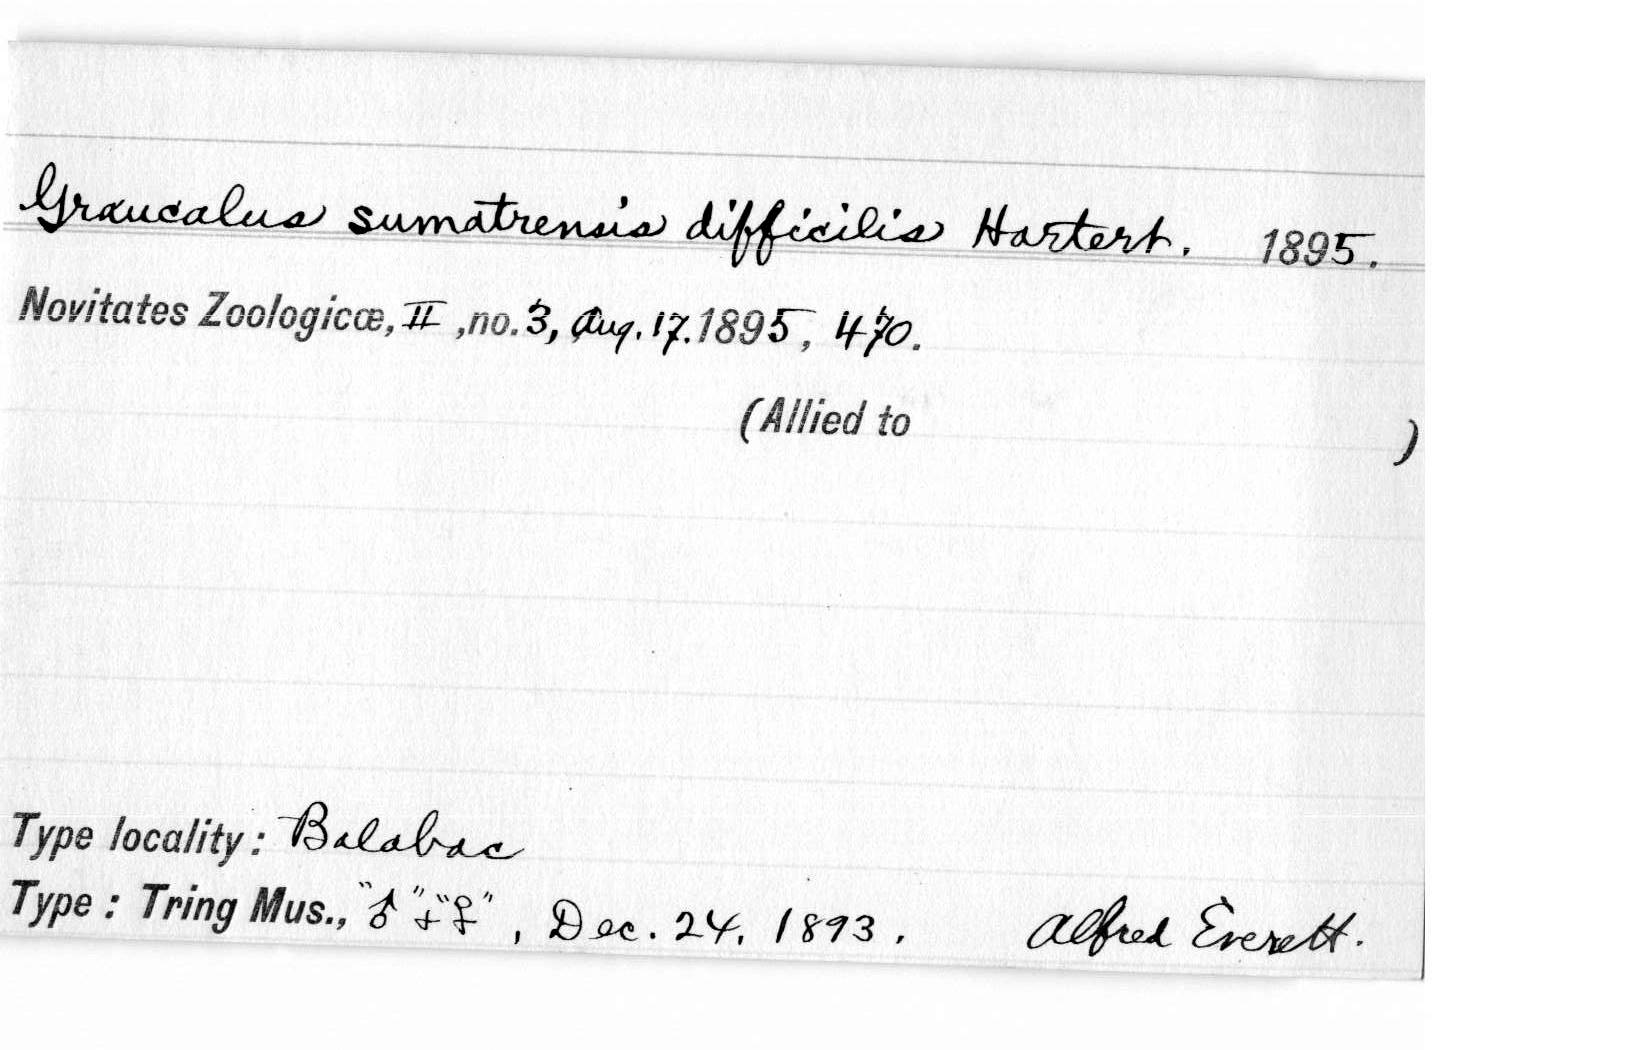 Graucalus sumatrensis difficilis Hartert. 1895.
Novitates Zoologicæ, II, no. 3, Aug. 17. 1895, 470.
(Allied to )
Type locality: Balabac
Type: Tring Mus., "♂" + "♀", Dec. 24, 1893. Alfred Everett.